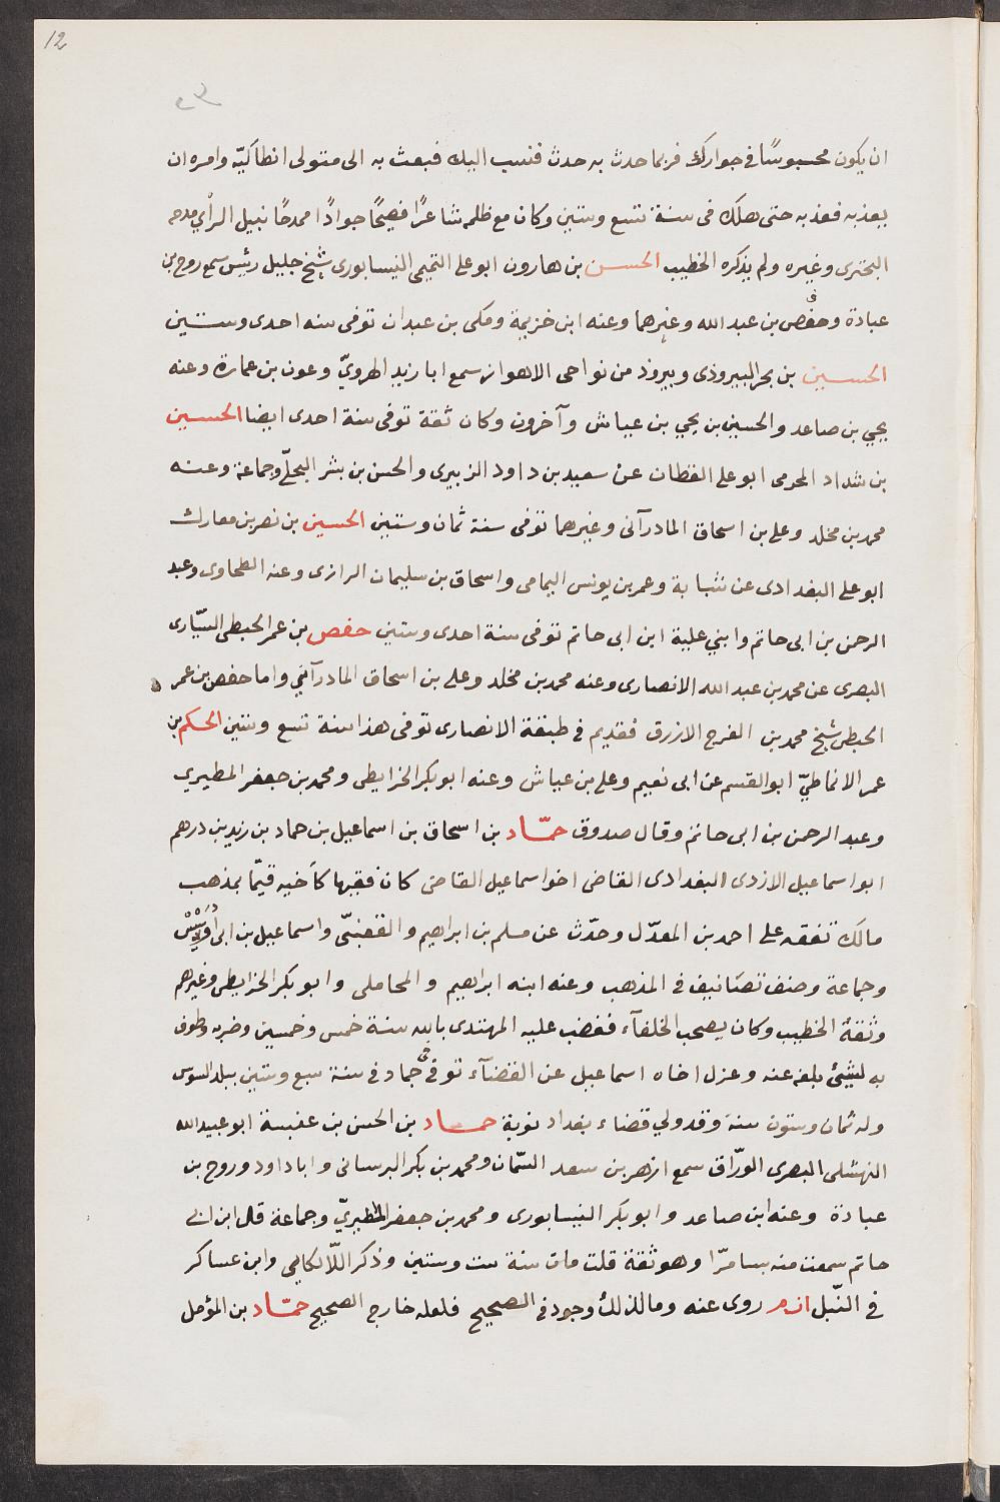 12
٢٣
ان يكون محبوسًا في جوارك فربما حدث به حدث فنسب اليك فبعث به الى متولى انطاكيّه وامره ان
يعذبه فعذبه حتى هلك فى سنة تسع وستين وكان مع ظلمه شاعرًا فصيحًا جوادًا ممدحًا نبيل الرأي مدحه
البحترى وغيره ولم يذكره الخطيب الحسن بن هارون ابو على التميمى النيسابورى شيخ جليل رئيس سمع روح بن
عبادة وحفص بن عبد الله وغيرهما وعنه ابن خزيمة ومكى بن عبدان توفى سنه احدى وستين
الحسين بن بحر البيروذى وبيروذ من نواحى الاهواز سمع ابا زيد الهرويّ وعون بن عمارة وعنه
يحيي بن صاعد والحسين بن يحيي بن عياش وآخرون وكان ثقة توفى سنة احدى ايضا الحسين
بن شداد المحرمى ابو على القطان عن سعيد بن داود الزبيرى والحسن بن بشر البجلّ وجماعة وعنه
محمد بن مخلد وعلى بن اسحاق المادرآنى وغيرهما توفى سنة ثمان وستين الحسين بن نصر بن معارك
ابو على البغدادى عن شبابة وعمر بن يونس اليمامى واسحاق بن سليمان الرازى وعنه الطحاوى وعبد
الرحمن بن ابى حاتم وابني علية ابن ابى حاتم توفى سنة احدى وستين حفص بن عمر الحبطى السيّارى
البصرى عن محمد بن عبد الله الانصارى وعنه محمد بن مخلد وعلى بن اسحاق المادرآني واما حفص بن عمر
الحبطى شيخ محمد بن الفرج الازرق فقديم في طبقة الانصارى توفى هذا سنة تسع وستين الحكم بن
عمر الانماطيّ ابو القسم عن ابى نعيم وعلى بن عياش وعنه ابو بكر الخرايطى ومحمد بن جعفر المطيري
وعبد الرحمن بن ابى حاتم وقال صدوق حمّاد بن اسحاق بن اسماعيل بن حماد بن زيد بن درهم
ابو اسماعيل الازدى البغدادى القاضى اخو اسماعيل القاضى كان فقيها كاخيه قيمّا بمذهب
مالك تفقه على احمد بن المعدّل وحدّث عن مسلم بن ابراهيم والقعنبّى واسماعيل بن ابى أُوَيْسْ
وجماعة وصنف تصَانيف في المذهب وعنه ابنه ابراهيم والمحاملى وابو بكر الخرايطى وغيرهم
وثقةُ الخطيب وكان يصحب الخلفآء فغضب عليه المهتدى بالله سنة خمس وخمسين وضربه وطوف
به لشئ بلغه عنه وعزل اخاه اسماعيل عن القضآء توفى حماد في سنة سبع وستين ببلد السوس
وله ثمان وستون سنه وقد ولي قضاء بغداد نوبة حماد بن الحسن بن عنبسة ابو عبيد الله
النهشلى البصرى الورّاق سمع ازهر بن سعد السّمان ومحمد بن بكر البرسانى وابا داود وروح بن
عبادة وعنه ابن صاعد وابو بكر النيسابورى ومحمد بن جعفر المطيريّ وجماعة قال ابن ابى
حاتم سمعت منه بسامرّا وهو ثقة قلت مات سنة ست وستين وذكر اللّالكايى وابن عساكر
في النّبل ان م روى عنه وما لذلك وجود في الصحيح فلعله خارج الصحيح حمّاد بن المؤمل